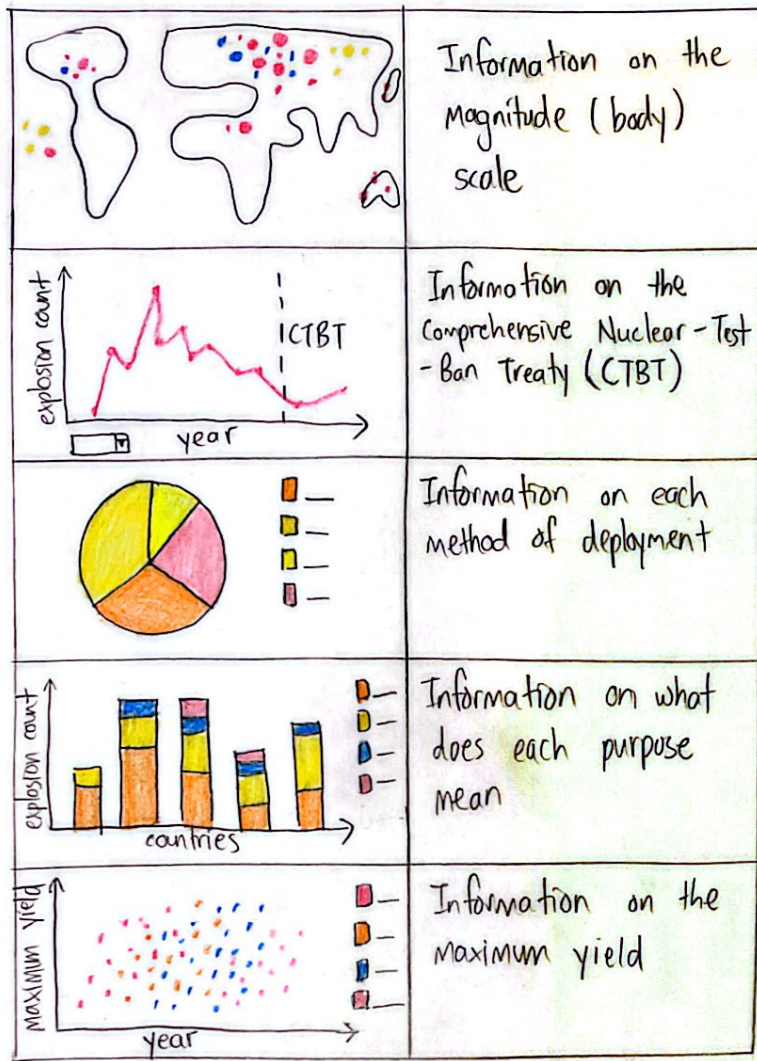 Information on the
magnitude (body)
scale
explosion count
CTBT
year
Information on the
Comprehensive Nuclear-Test
-Ban Treaty (CTBT)
Information on each
method of deployment
explosion count
countries
Information on what
does each purpose
mean
maximum yield
year
Information on the
maximum yield